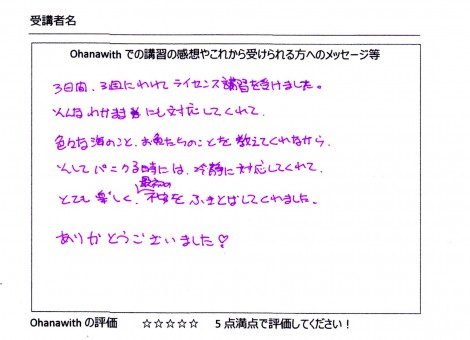 受講者名
Ohanawith での講習の感想やこれから受けられる方へのメッセージ等
3日間、3回にわけてライセンス講習を受けました。
そんなわがままにも対応してくれて、
色々な海のこと、お魚たちのことを教えてくれながら、
そしてパニクる時には、冷静に対応してくれて、
最初の
とても楽しく、不安をふきとばしてくれました。
ありがとうございました♡
Ohanawith の評価 ☆☆☆☆☆ 5 点満点で評価してください！